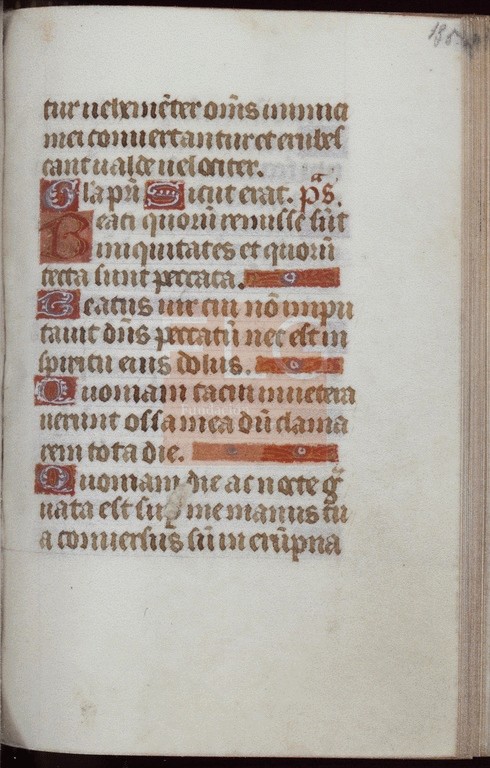 185
tur uehemēter om̄s inimici
mei conuertantur et erubes
cant ualde uelociter.
Gl̄a pr̄i Sicut erat. p̄s.
Beati quorū remisse sūt
iniquitates et quorū
tecta sunt peccata.
Beatus uir cui nō impu
tauit dn̄s peccatū nec est in
spiritu eius dolus.
Quoniam tacui inuetera
uerunt ossa mea dū clama
rem tota die.
Quoniam die ac nocte gͣ
uata est sup me manus tu
a conuersus sū in erūpna
Fundación